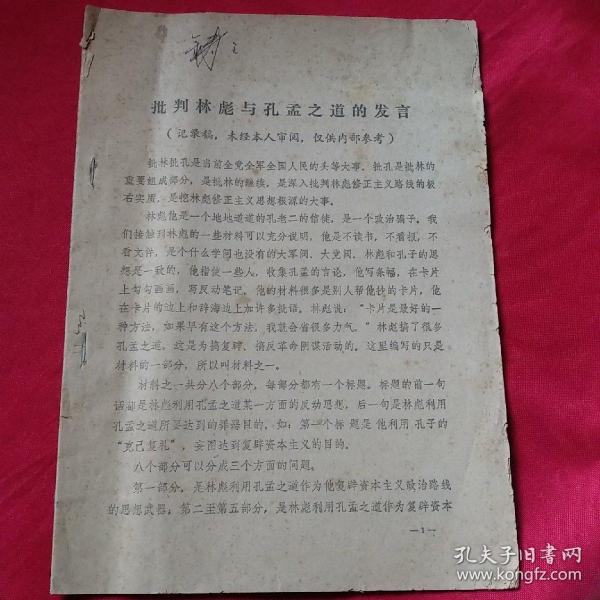 批判林彪与孔孟之道的发言
（记录稿，未经本人审阅，仅供内部参考）
批林批孔是当前全党全军全国人民的头等大事。批孔是批林的
重要组成部分，是批林的继续，是深入批判林彪修正主义路线的极
右实质，是挖林彪修正主义思想根源的大事。
林彪他是一个地地道道的孔老二的信徒，是一个政治骗子，我
们接触到林彪的一些材料可以充分说明，他是不读书，不看报，不
看文件，是个什么学问也没有的大军阀、大党阀。林彪和孔子的思
想是一致的，他指使一些人，收集孔孟的言论，他写条幅，在卡片
上勾勾画画，写反动笔记。他的材料很多是别人帮他抄的卡片，他
在卡片的边上和辞海边上加许多批语。林彪说：“卡片是最好的一
种方法，如果早有这个方法，我就会省很多力气。”林彪搞了很多
孔孟之道，这是为搞复辟、搞反革命阴谋活动的。这里编写的只是
材料的一部分，所以叫材料之一。
材料之一共分八个部分，每部分都有一个标题。标题的前一句
话都是林彪利用孔孟之道某一方面的反动思想，后一句是林彪利用
孔孟之道所要达到的罪恶目的。如：第一个标题是他利用孔子的
“克己复礼”，妄图达到复辟资本主义的目的。
八个部分可以分成三个方面的问题。
第一部分，是林彪利用孔孟之道作为他复辟资本主义政治路线
的思想武器；第二至第五部分，是林彪利用孔孟之道作为复辟资本
—1—
孔夫子旧书网
www.kongfz.com